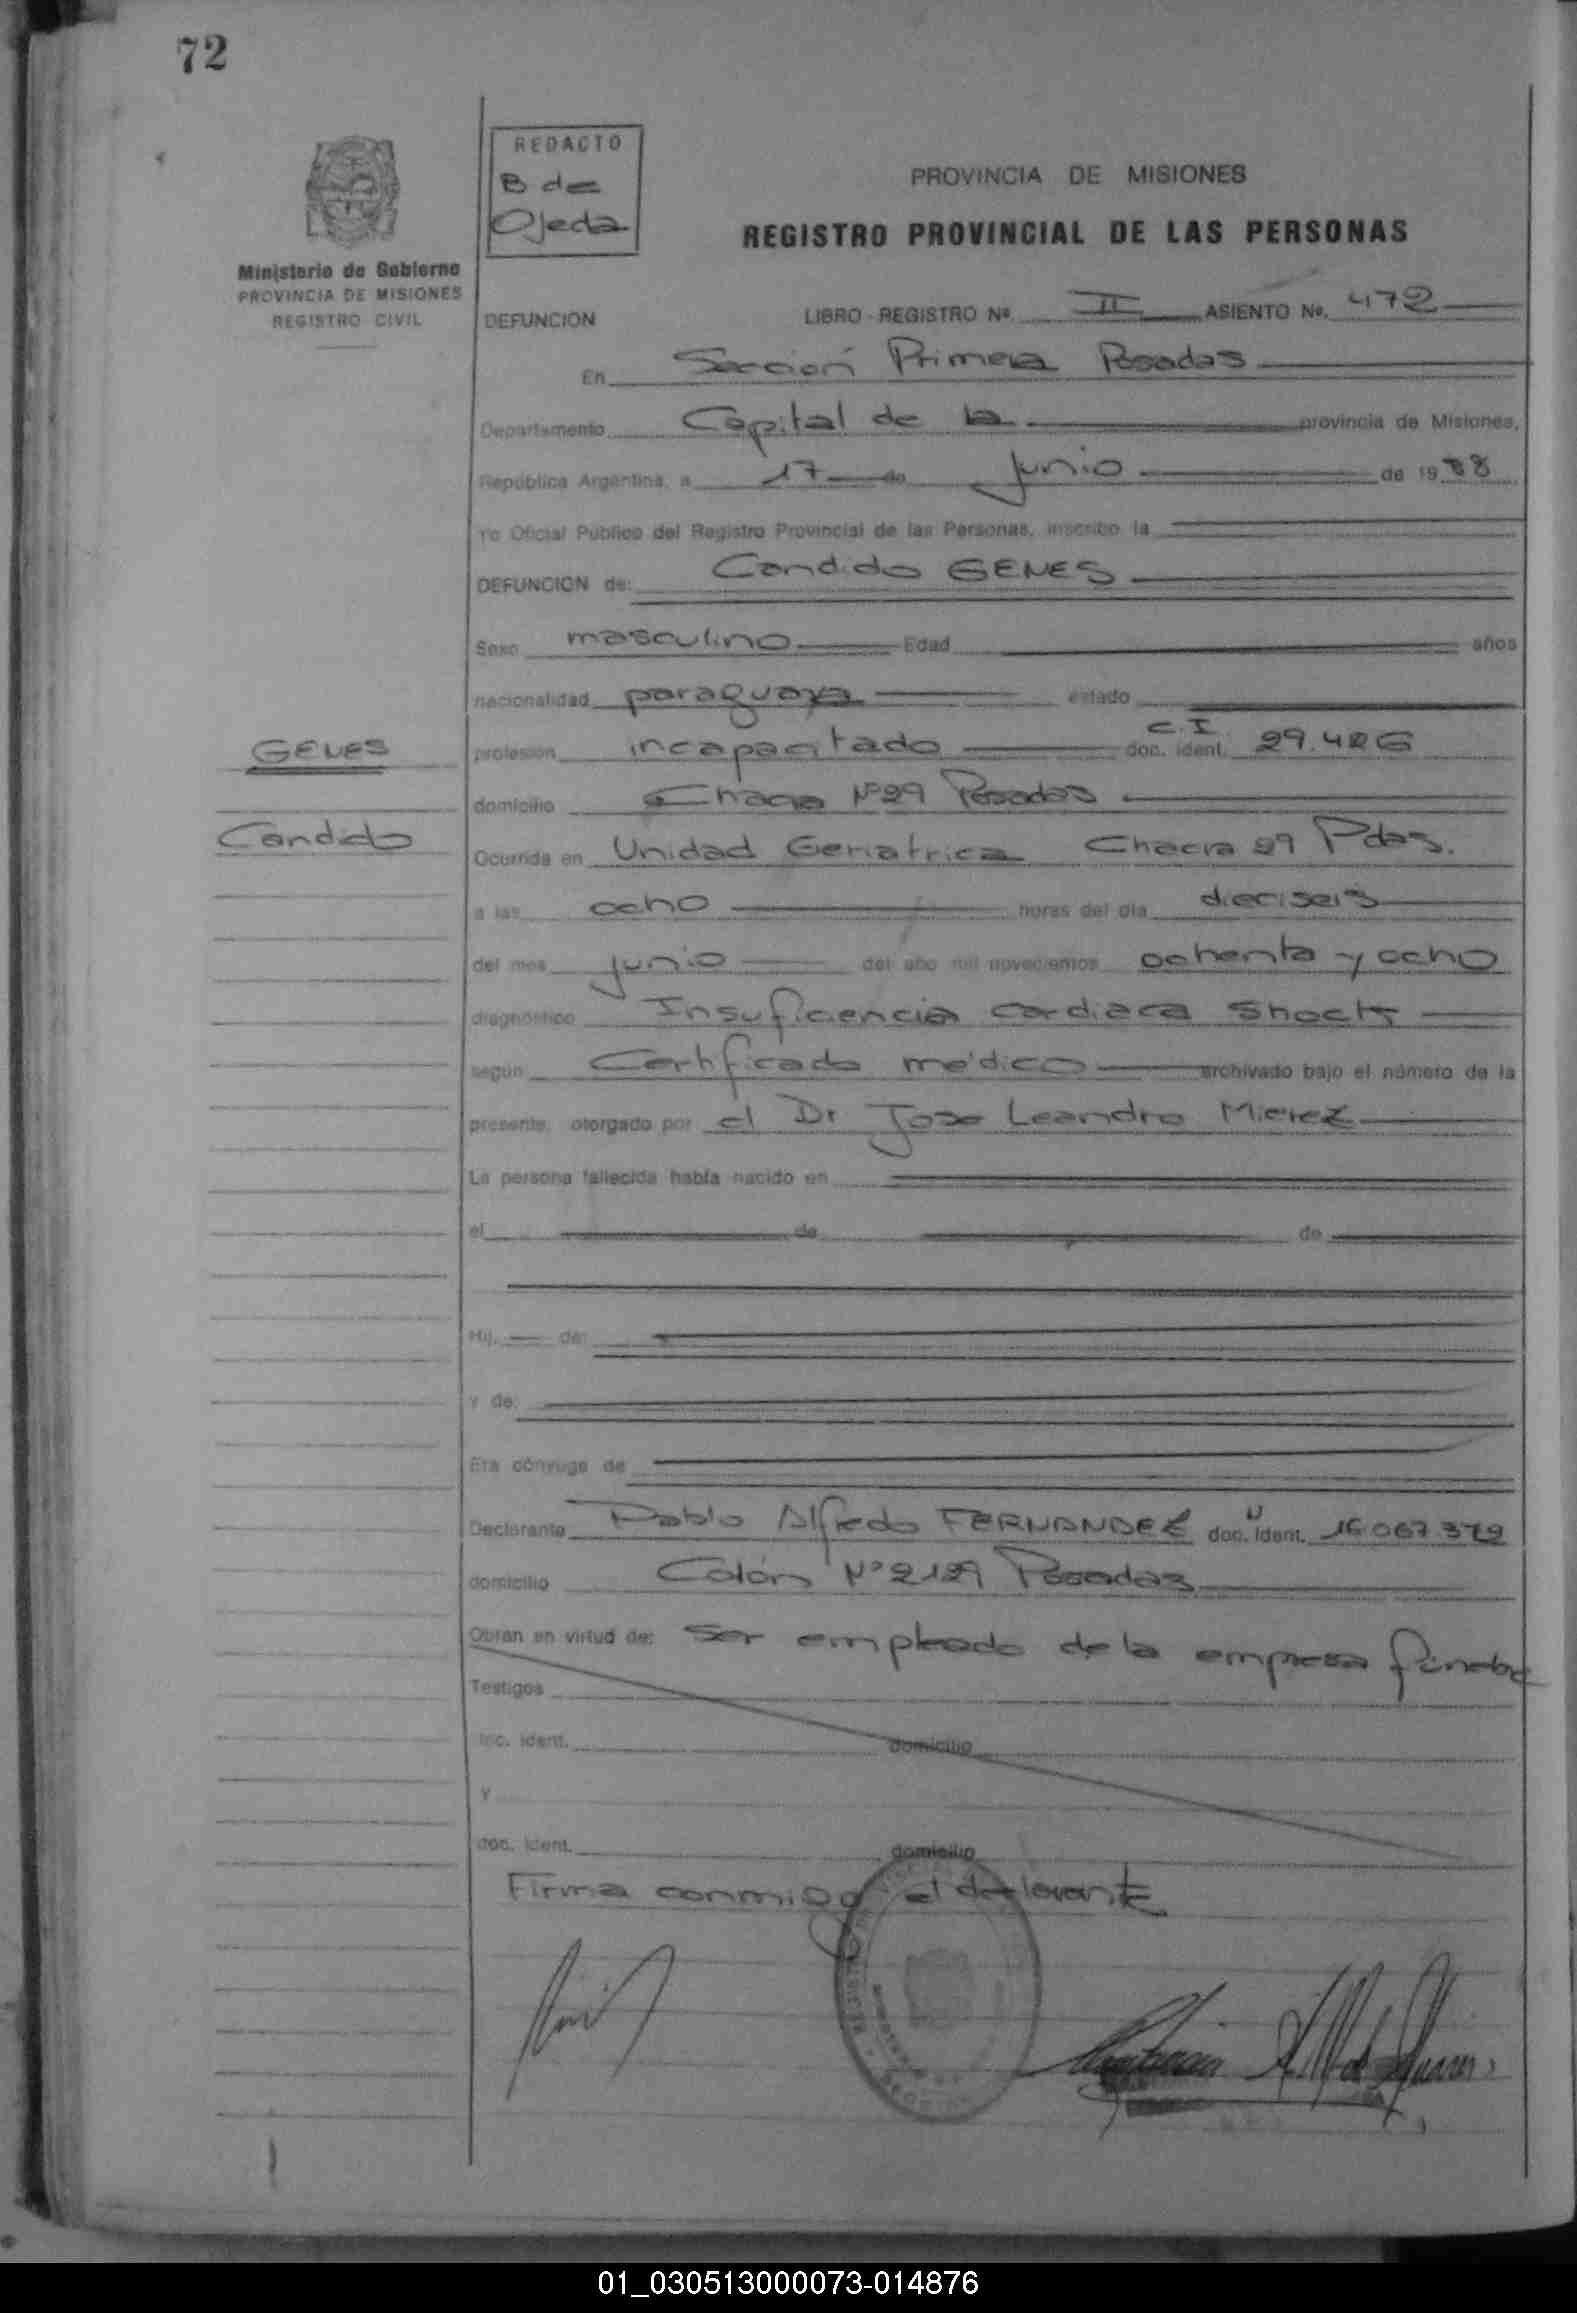 72
REDACTO
B de
Ojeda
Ministerio de Gobierno
PROVINCIA DE MISIONES
REGISTRO CIVIL
PROVINCIA DE MISIONES
REGISTRO PROVINCIAL DE LAS PERSONAS
DEFUNCION LIBRO - REGISTRO Nº II ASIENTO Nº. 472
En Sección Primera Posadas
Departamento Capital de la provincia de Misiones,
República Argentina, a 17 de junio de 1988
Yo Oficial Público del Registro Provincial de las Personas, inscribo la
DEFUNCION de: Candido GENES
Sexo masculino Edad años
nacionalidad paraguaya estado
GENES
Candido
profesión incapacitado C.I doc. ident. 29.426
domicilio Chacra Nº29 Posadas
Ocurrida en Unidad Geriatrica Chacra 29 Pdas.
a las ocho horas del día dieciseis
del mes junio del año mil novecientos ochenta y ocho
diagnóstico Insuficiencia cardiaca Shock
según Certificado médico archivado bajo el número de la
presente, otorgado por el Dr Jose Leandro Mierez
La persona fallecida había nacido en
el de de
Hij. de:
y de:
Era cónyuge de
Declarante Pablo Alfredo FERNANDEZ U doc. Ident. 16.067.379
domicilio Colón Nº2129 Posadas
Obran en virtud de: Ser empleado de la empresa fúnebre
Testigos
doc. ident. domicilio
Y
doc. ident. domicilio
Firma conmigo el declarante
01_030513000073-014876